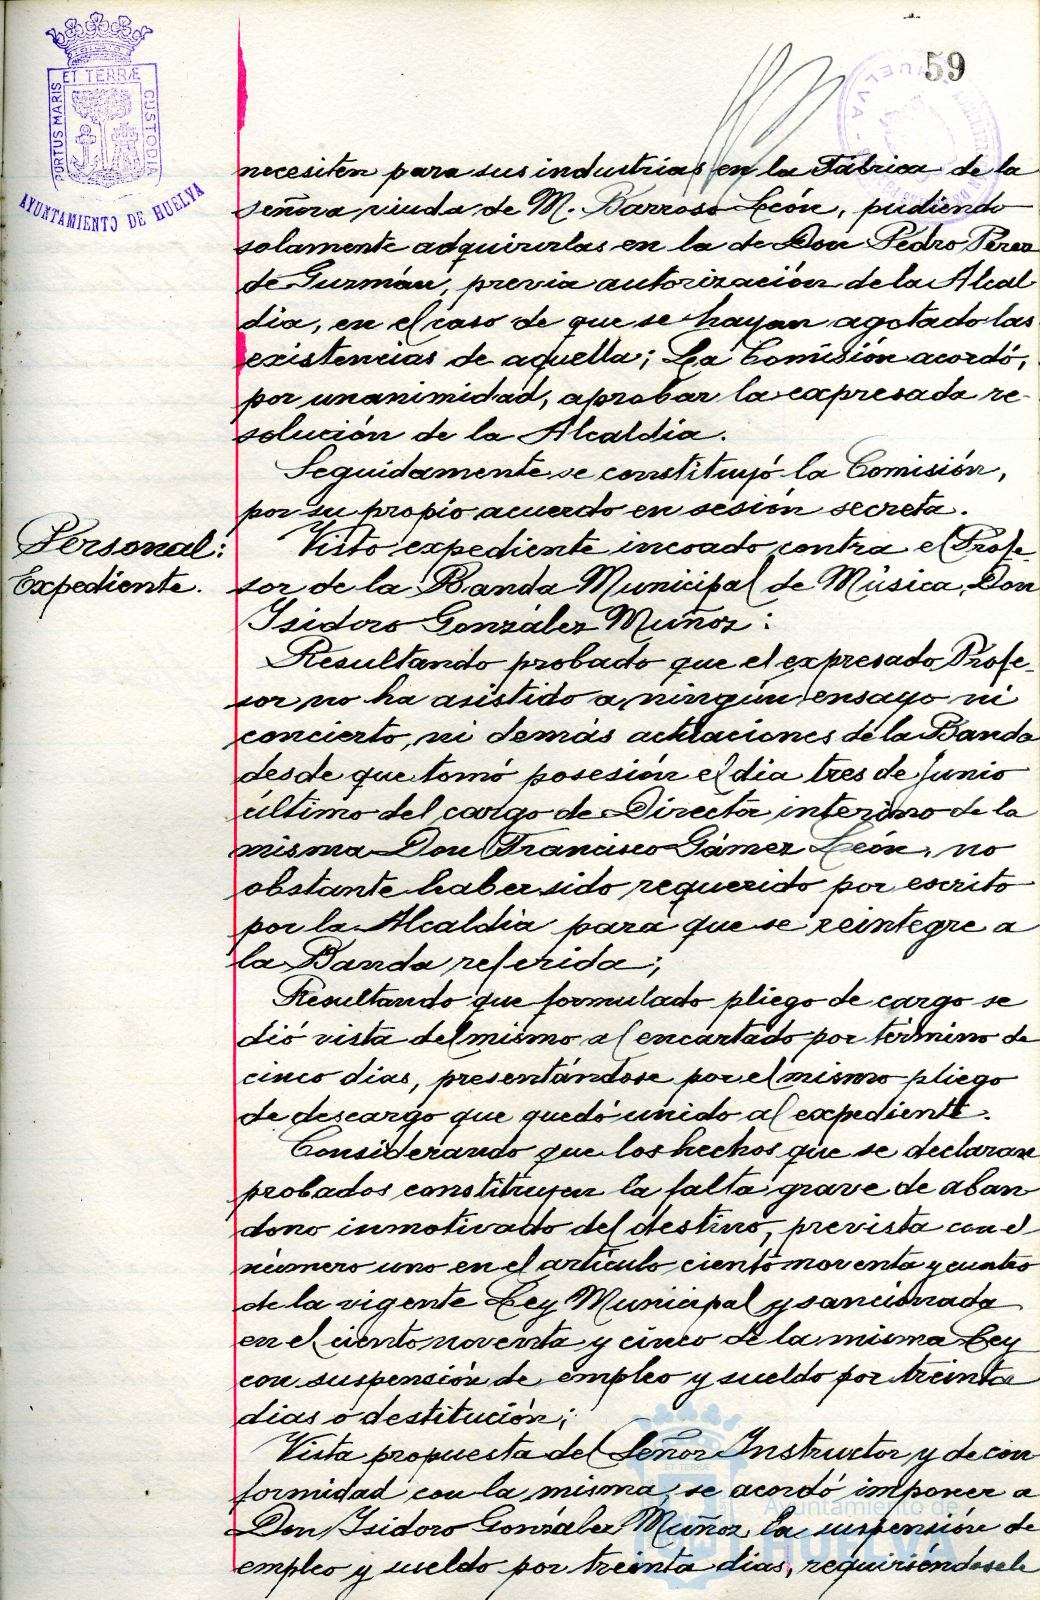 59
PORTUS MARIS ET TERRÆ CUSTODIA
AYUNTAMIENTO DE HUELVA
HUELVA
necesiten para sus industrias en la Fábrica de la
señora viuda de M. Barroso León, pudiendo
solamente adquirirlas en la de Don Pedro Pérez
de Guzmán, previa autorización de la Alcal
dia, en el caso de que se hayan agotado las
existencias de aquella; La Comisión acordó,
por unanimidad, aprobar la expresada re-
solución de la Alcaldia.
Seguidamente se constituyó la Comisión,
por su propio acuerdo en sesión secreta.
Personal:
Expediente.
Visto expediente incoado contra el Profe-
sor de la Banda Municipal de Música, Don
Isidoro González Muñoz:
Resultando probado que el expresado Profe-
sor no ha asistido a ningún ensayo ni
concierto, ni demás actuaciones de la Banda
desde que tomó posesión el dia tres de Junio
último del cargo de Director interino de la
misma Don Francisco Gámez León, no
obstante haber sido requerido por escrito
por la Alcaldia para que se reintegre a
la Banda referida;
Resultando que formulado pliego de cargo se
dió vista del mismo al encartado por término de
cinco dias, presentándose por el mismo pliego
de descargo que quedó unido al expediente.
Considerando que los hechos que se declaran
probados constituyen la falta grave de aban
dono inmotivado del destino, prevista con el
número uno en el artículo ciento noventa y cuatro
de la vigente Ley Municipal y sancionada
en el ciento noventa y cinco de la misma Ley
con suspensión de empleo y sueldo por treinta
dias o destitución;
Vista propuesta del Señor Instructor y de con
formidad con la misma, se acordó imponer a
Don Isidoro González Muñoz la suspensión de
empleo y sueldo por treinta dias, requiriéndosele
ET TERRÆ
Ayuntamiento de
HUELVA